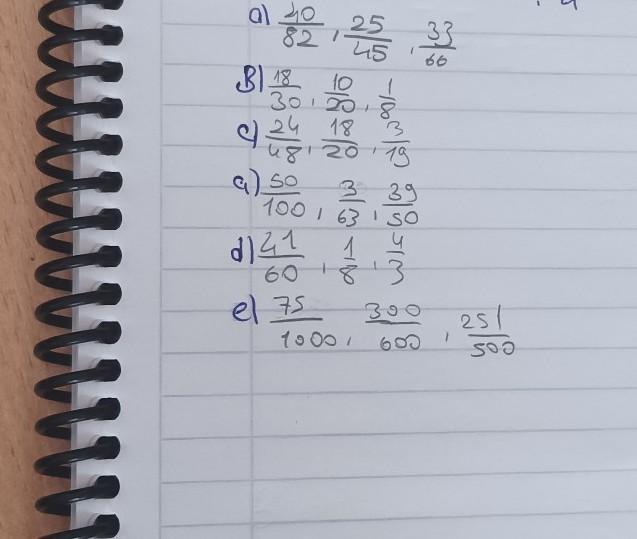 a) 40/82, 25/45, 33/66
B) 18/30, 10/20, 1/8
c) 24/48, 18/20, 3/19
a) 50/100, 3/63, 39/50
d) 41/60, 1/8, 4/3
e) 75/1000, 300/600, 251/500